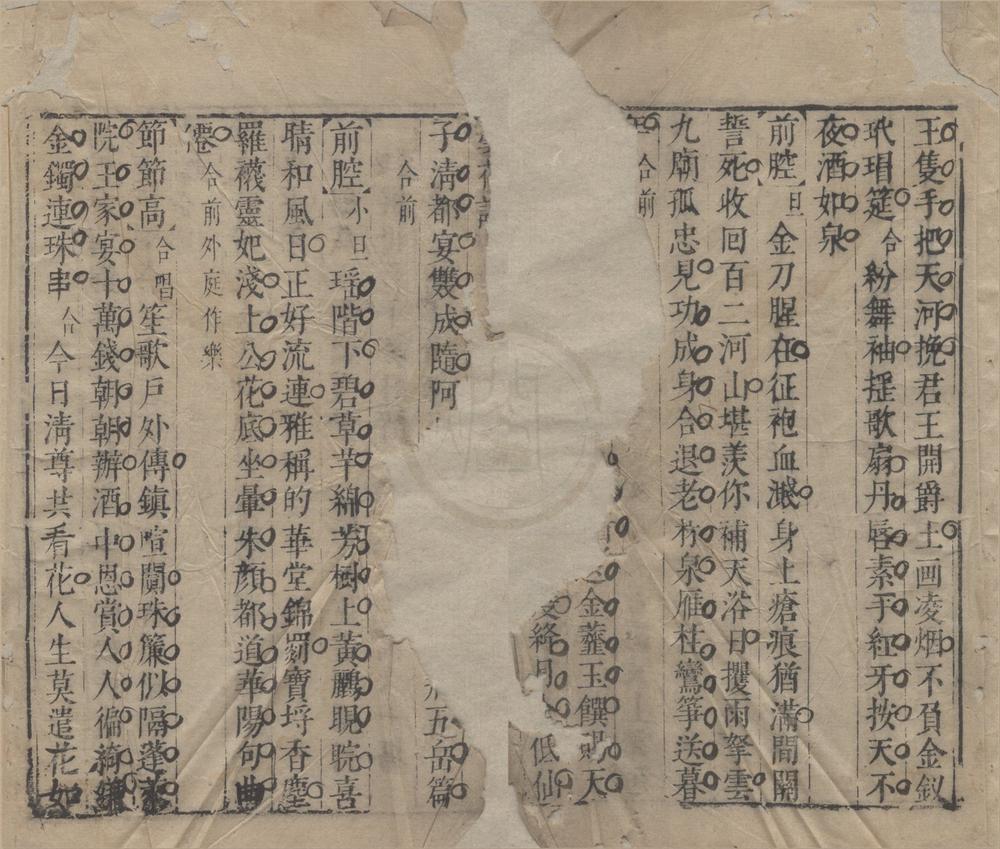 王隻手把天河挽君王開爵土画凌烟不負金釵
玳瑁筵合紛舞袖揺歌扇丹唇素手紅牙按天不
夜酒如泉
前腔旦金刀腥在征袍血濺身上瘡痕猶滿間關
誓死收回百二河山堪羨你補天浴日攫雨拏雲
九廟孤忠見功成身合退老林泉雁柱鸞箏送暮
合前
金虀玉饌賜天
絳月低仙
子清都宴雙成隨阿五岳篇
合前
前腔小旦瑶階下碧草芊綿芳樹上黃鸝睍睆喜
晴和風日正好流連雅稱的華堂錦罽寶埒香塵
羅襪靈妃淺上公花底坐暈朱顏都道華陽句曲
合前外庭作樂
節節高合唱笙歌戶外傳鎮喧闐珠簾似隔蓬
院王家宴十萬錢朝朝辦酒中恩賞人人徧
金鐲連珠串合今日清尊共看花人生莫遣花如